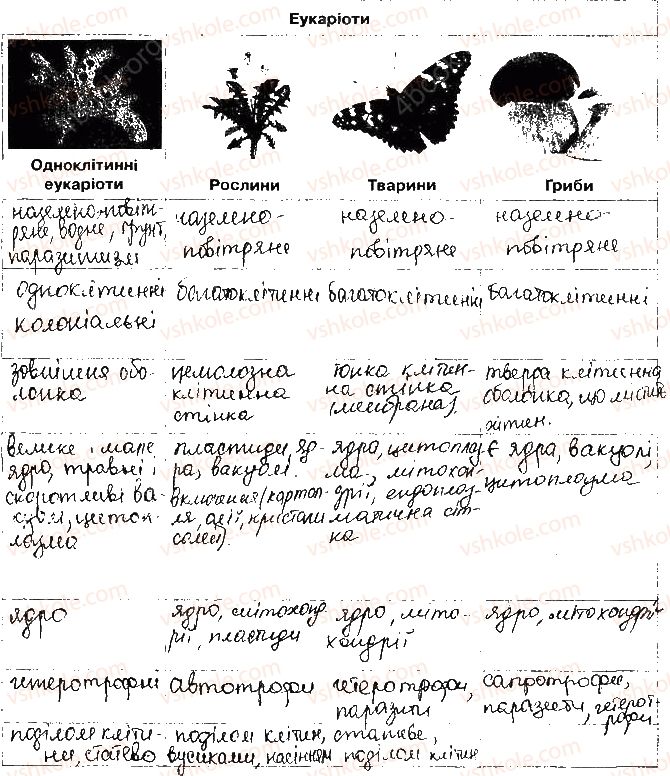 Еукаріоти
Одноклітинні
еукаріоти
Рослини
Тварини
Гриби
наземно-повіт-
ряне, водне, ґрунт,
паразитизм
наземно-
повітряне
наземно-
повітряне
наземно-
повітряне
одноклітинні
колоніальні
багатоклітинні
багатоклітинні
багатоклітинні
зовнішня обо-
лонка
целюлозна
клітинна
стінка
тонка клітин-
на стінка
(мембрана)
тверда клітинна
оболонка, що містить
хітин.
велике і мале
ядро, травні і
скоротливі ва-
куолі, цитоп-
лазма
пластиди, яд-
ра, вакуолі.
включення (картоп-
ля, олії, кристали
солей).
ядро, цитоплаз-
ма, мітохон-
дрії, ендоплаз-
матична сіт-
ка
Є ядра, вакуолі,
цитоплазма
ядро
ядро, мітохонд-
рії, пластиди
ядро, міто-
хондрії
ядро, мітохондрії
гетеротрофні
автотрофи
гетеротрофи,
паразити
сапротрофи,
паразити, гетерот-
рофи
поділом кліти-
ни, статево
поділом клітин, статеве,
вусиками, насінням
поділом клітин